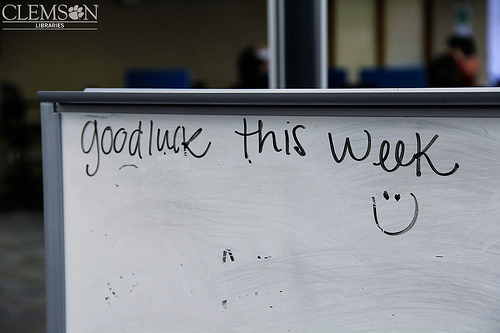 CLEMSON
LIBRARIES
goodluck this week